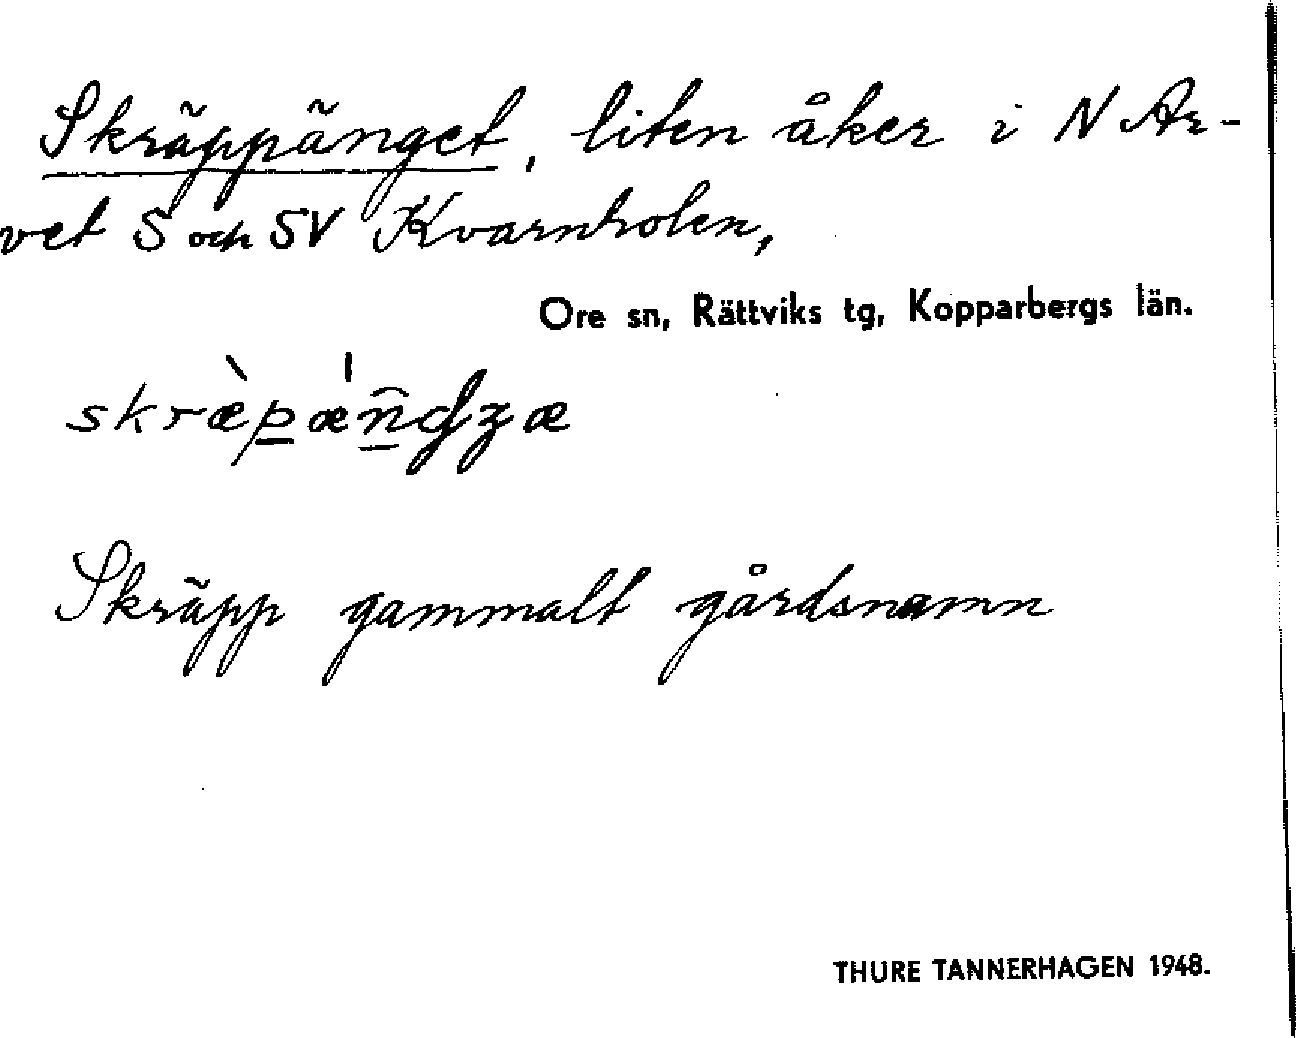 Skräppänget, liten åker i N Ar-
vet S och SV Kvarnholen,
Ore sn, Rättviks tg, Kopparbergs län.
Skräpp gammalt gårdsnamn
THURE TANNERHAGEN 1948.